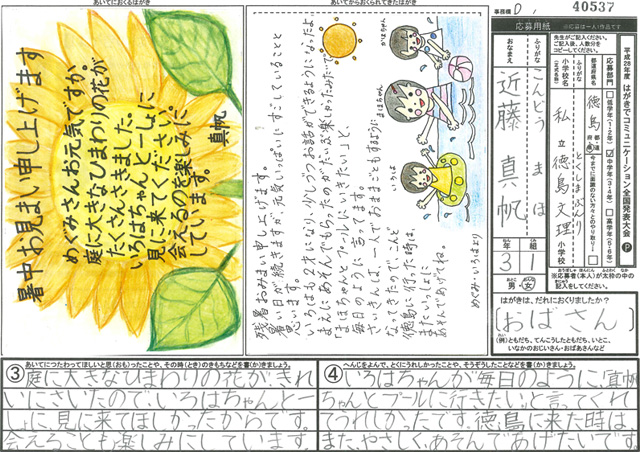 あいてにおくるはがき
暑中お見まい申し上げます
めぐみさんお元気ですか。
庭に大きなひまわりの花が
たくさんさきました。
いろはちゃんと一しょに
見に来てください。
会えるのを楽しみに
しています。
真帆
あいてからおくられてきたはがき
かほちゃん
まほちゃん
いろは
残暑おみまい申し上げます。
暑い日が続きますが、元気いっぱいにすごしていることと
思います。
いろはも2才になり、少しずつお話ができるようになったよ。
まえにあそんでもらったのがたいぶ楽しかったみたいで、
「まほちゃんとプールに行きたい」と、
毎日のように言っています。
さいきんは、一人でおままごともするように
なってきたので、こんど
徳島に行った時は、
またいっしょに
あそんであげてね。
めぐみ・いろはより
事務欄
D
40537
応募用紙
※応募は一人1作品です
先生がご記入ください。
ご記入後、人数分を
コピーしてください。
平成28年度 はがきでコミュニケーション全国発表大会 P
応募部門
低学年(1・2年)
中学年(3・4年)
高学年(5・6年)
都道府県名
徳島
都道府県
今までに面識のない方々とのやり取り
ふりがな
とくしまぶんり
小学校名
(正式名称)
私立徳島文理
小学校
ふりがな
こんどう まほ
おなまえ
近藤 真帆
年
3
組
1
男・女
※応募者(本人)が太枠の中の
記入をしてください。
はがきは、だれにおくりましたか?
(おばさん)
(例)ともだち、てんこうしたともだち、いとこ、
いなかのおじいさん・おばあさんなど
あいてにつたわってほしいと思(おも)ったことや、その時(とき)のきもちなどを書(か)きましょう。
③庭に大きなひまわりの花が、きれ
いにさいたので、いろはちゃんと一
しょに見に来てほしかったからです。
会えることも楽しみにしています。
へんじをよんで、とくにうれしかったことや、そうぞうしたことなどを書(か)きましょう。
④いろはちゃんが毎日のように、「真帆
ちゃんとプールに行きたい。」と言ってくれ
てうれしかったです。徳島に来た時は、
また、やさしく、あそんであげたいです。